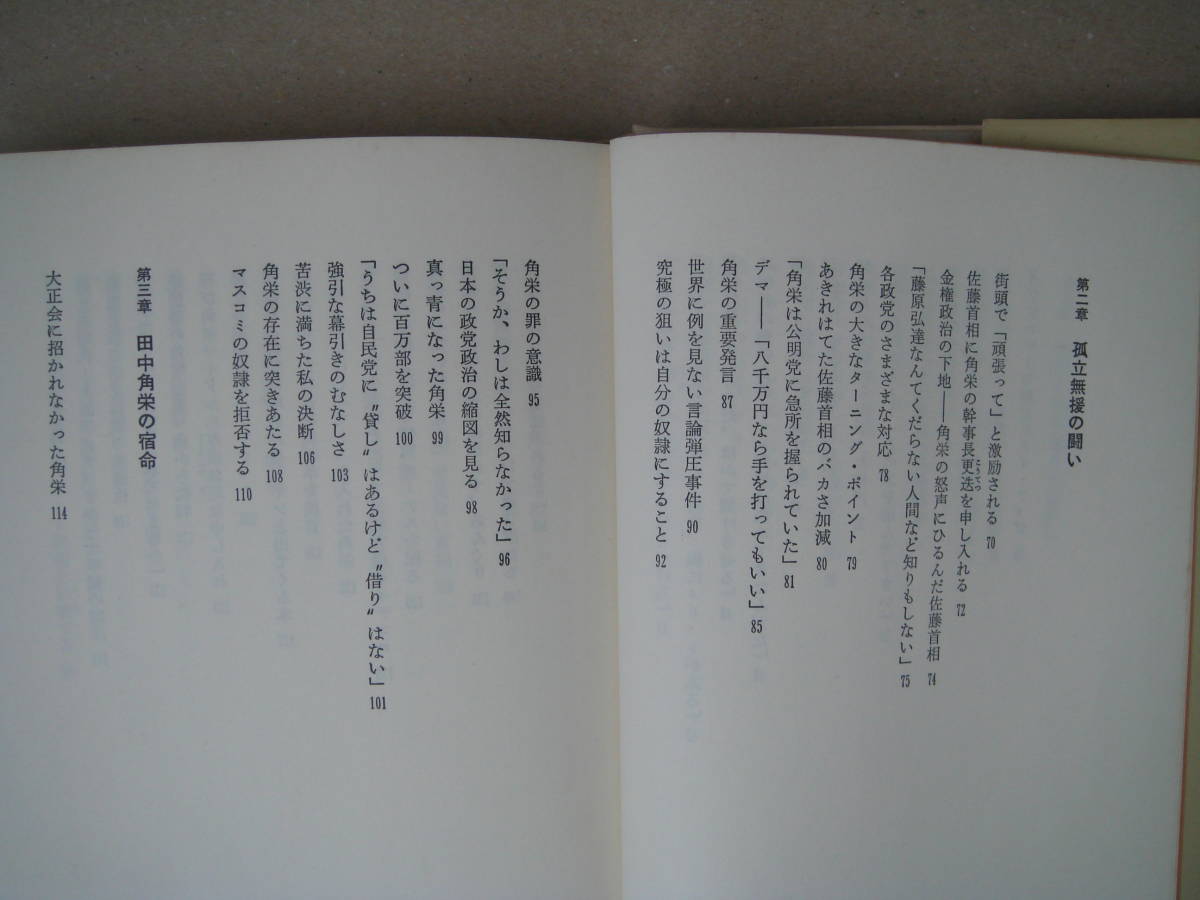 第二章　孤立無援の闘い
街頭で「頑張って」と激励される 70
佐藤首相に角栄の幹事長更迭を申し入れる 72
こうてつ
金権政治の下地——角栄の怒声にひるんだ佐藤首相 74
「藤原弘達なんてくだらない人間など知りもしない」 75
各政党のさまざまな対応 78
角栄の大きなターニング・ポイント 79
あきれはてた佐藤首相のバカさ加減 80
「角栄は公明党に急所を握られていた」 81
デマ——「八千万円なら手を打ってもいい」 85
角栄の重要発言 87
世界に例を見ない言論弾圧事件 90
究極の狙いは自分の奴隷にすること 92
角栄の罪の意識 95
「そうか、わしは全然知らなかった」 96
日本の政党政治の縮図を見る 98
真っ青になった角栄 99
ついに百万部を突破 100
「うちは自民党に〝貸し〟はあるけど〝借り〟はない」 101
強引な幕引きのむなしさ 103
苦渋に満ちた私の決断 106
角栄の存在に突きあたる 108
マスコミの奴隷を拒否する 110
第三章　田中角栄の宿命
大正会に招かれなかった角栄 114